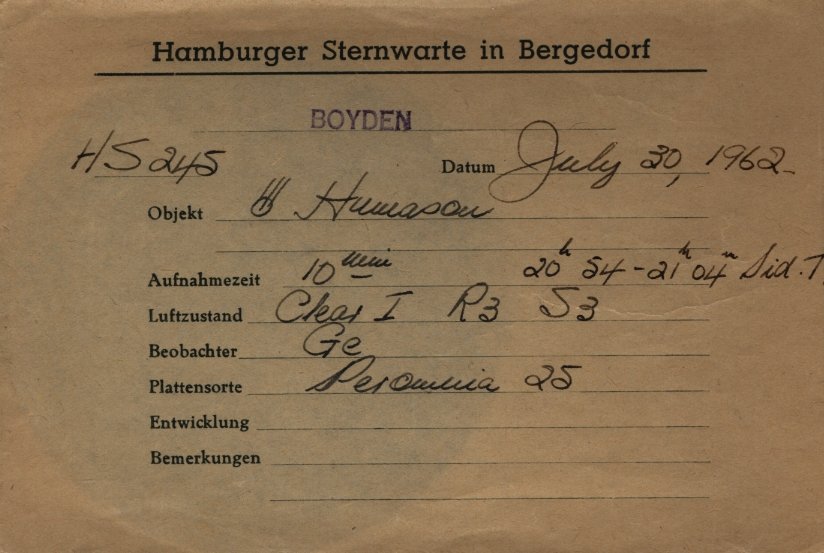 Hamburger Sternwarte in Bergedorf
BOYDEN
HS 245 Datum July 30, 1962
Objekt ☄ Humason
Aufnahmezeit 10 min 20h 54 - 21h 04m Sid. T
Luftzustand Clear I R3 S3
Beobachter Ge
Plattensorte Peromnia 25
Entwicklung
Bemerkungen